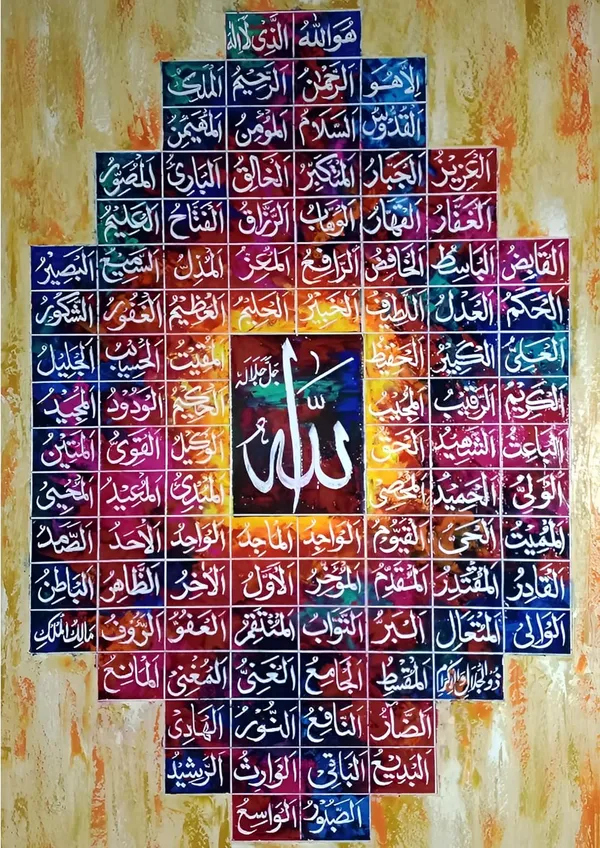 هُوَ اللهُ الَّذِى لَا إِلٰهَ
إِلَّا هُوَ الرَّحْمٰنُ الرَّحِيْمُ الْمَلِكُ
الْقُدُّوْسُ السَّلَامُ الْمُؤْمِنُ الْمُهَيْمِنُ
الْعَزِيْزُ الْجَبَّارُ الْمُتَكَبِّرُ الْخَالِقُ الْبَارِىُ الْمُصَوِّرُ
الْغَفَّارُ الْقَهَّارُ الْوَهَّابُ الرَّزَّاقُ الْفَتَّاحُ الْعَلِيْمُ
الْقَابِضُ الْبَاسِطُ الْخَافِضُ الرَّافِعُ الْمُعِزُّ الْمُذِلُّ السَّمِيْعُ الْبَصِيْرُ
الْحَكَمُ الْعَدْلُ اللَّطِيْفُ الْخَبِيْرُ الْحَلِيْمُ الْعَظِيْمُ الْغَفُوْرُ الشَّكُوْرُ
الْعَلِىُّ الْكَبِيْرُ الْحَفِيْظُ الْمُقِيْتُ الْحَسِيْبُ الْجَلِيْلُ
جَلَّ جَلَالُهُ
الله
الْكَرِيْمُ الرَّقِيْبُ الْمُجِيْبُ الْحَكِيْمُ الْوَدُوْدُ الْمَجِيْدُ
الْبَاعِثُ الشَّهِيْدُ الْحَقُّ الْوَكِيْلُ الْقَوِىُّ الْمَتِيْنُ
الْوَلِىُّ الْحَمِيْدُ الْمُحْصِى الْمُبْدِىُ الْمُعِيْدُ الْمُحْيِى
الْمُمِيْتُ الْحَىُّ الْقَيُّوْمُ الْوَاجِدُ الْمَاجِدُ الْوَاحِدُ الْأَحَدُ الصَّمَدُ
الْقَادِرُ الْمُقْتَدِرُ الْمُقَدِّمُ الْمُؤَخِّرُ الْأَوَّلُ الْآخِرُ الظَّاهِرُ الْبَاطِنُ
الْوَالِى الْمُتَعَالُ الْبَرُّ التَّوَّابُ الْمُنْتَقِمُ الْعَفُوُّ الرَّؤُفُ مَالِكُ الْمُلْكِ
ذُو الْجَلَالِ وَالْإِكْرَامِ الْمُقْسِطُ الْجَامِعُ الْغَنِىُّ الْمُغْنِى الْمَانِعُ
الضَّارُّ النَّافِعُ النُّوْرُ الْهَادِى
الْبَدِيْعُ الْبَاقِى الْوَارِثُ الرَّشِيْدُ
الصَّبُوْرُ الْوَاسِعُ